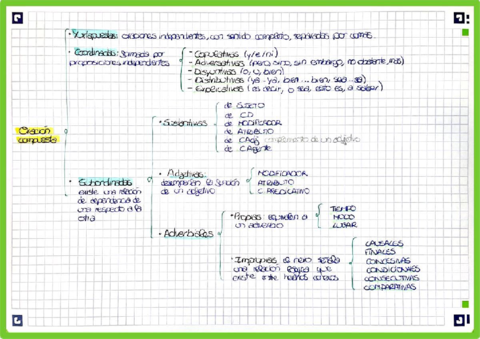 • Yuxtapuestas: oraciones independientes, con sentido completo, separadas por comas.
• Coordinadas: formada por
proposiciones independientes
- Copulativas (y/e/ni)
- Adversativas (pero, sino, sin embargo, no obstante, más)
- Disyuntivas (o, u, bien)
- Distributivas (ya...ya, bien... bien, sea...sea)
- Explicativas (es decir, o sea, esto es, a saber)
Oración
compuesta
• Subordinadas
existe una relación
de dependencia de
una respecto a la
otra
• Sustantivas
de SUJETO
de CD
de MODIFICADOR
de ATRIBUTO
de CAdj complemento de un adjetivo
de CAgente
• Adjetivas:
desempeñan la función
de un adjetivo
MODIFICADOR
ATRIBUTO
C. PREDICATIVO
• Adverbiales
• Propias: equivalen a
un adverbio
TIEMPO
MODO
LUGAR
• Impropias: el nexo señala
una relación lógica que
existe entre hechos
CAUSALES
FINALES
CONCESIVAS
CONDICIONALES
CONSECUTIVAS
COMPARATIVAS